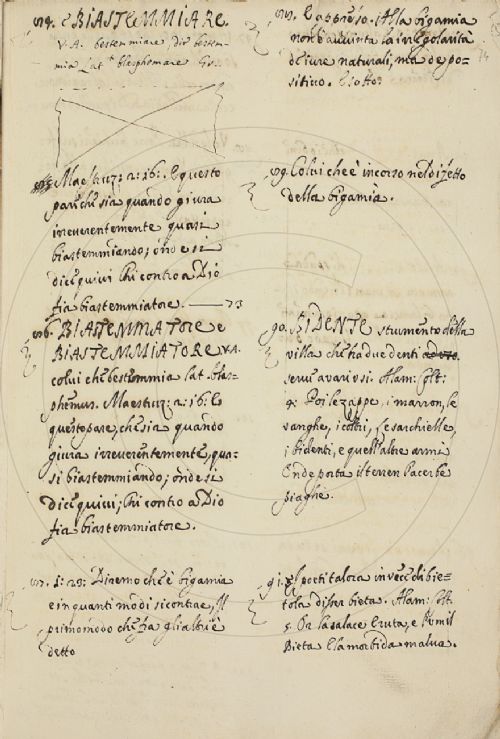 BIASTEMMIARE.
V.A. bestemmiare, dir bestem-
mia Lat. blasphemare Gr.
Maestruz: 2: 16: E questo
par che sia quando giura
irreverentemente quasi
biastemmiando; onde si
dice quivi Chi contro a Dio
fia biastemmiatore. 73
BIASTEMMATORE e
BIASTEMMIATORE V.A.
colui che bestemmia Lat. blas-
phemus. Maestruz: 2: 16: E
questo pare, che sia quando
giura irreverentemente, qua-
si biastemmiando; onde si
dice quivi; Chi contro a Dio
fia biastemmiatore.
Diremo che è bigamia
e in quanti modi si contrae, Il
primo modo che fra gli altri è
detto
E appresso. Alla bigamia
non è avvinta la irregolarità
de iure naturali, ma de po-
sitivo. E sotto
89. Colui che è incorso nel difetto
della bigamia.
90. BIDENTE strumento della
villa che ha due denti
serve a vari usi. Alam: Colt:
Poi le zappe, i marron, le
vanghe, i coltri, le sarchielle,
i bidenti, e quell'altre armi
Onde porta il terren l'acerbe
piaghe.
91. I poeti talora in vece di bie-
tola disser bieta. Alam: Colt.
5. Or la salace Eruta, e l'umil
Bieta E la morbida malva.